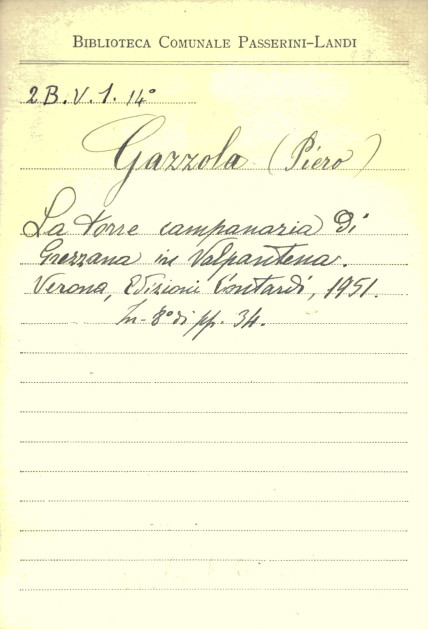 BIBLIOTECA COMUNALE PASSERINI-LANDI
2 B. V. 1. 14°
Gazzola (Piero)
La torre campanaria di
Grezzana in Valpantena.
Verona, Edizioni 1951.
In-8° di pp. 34.